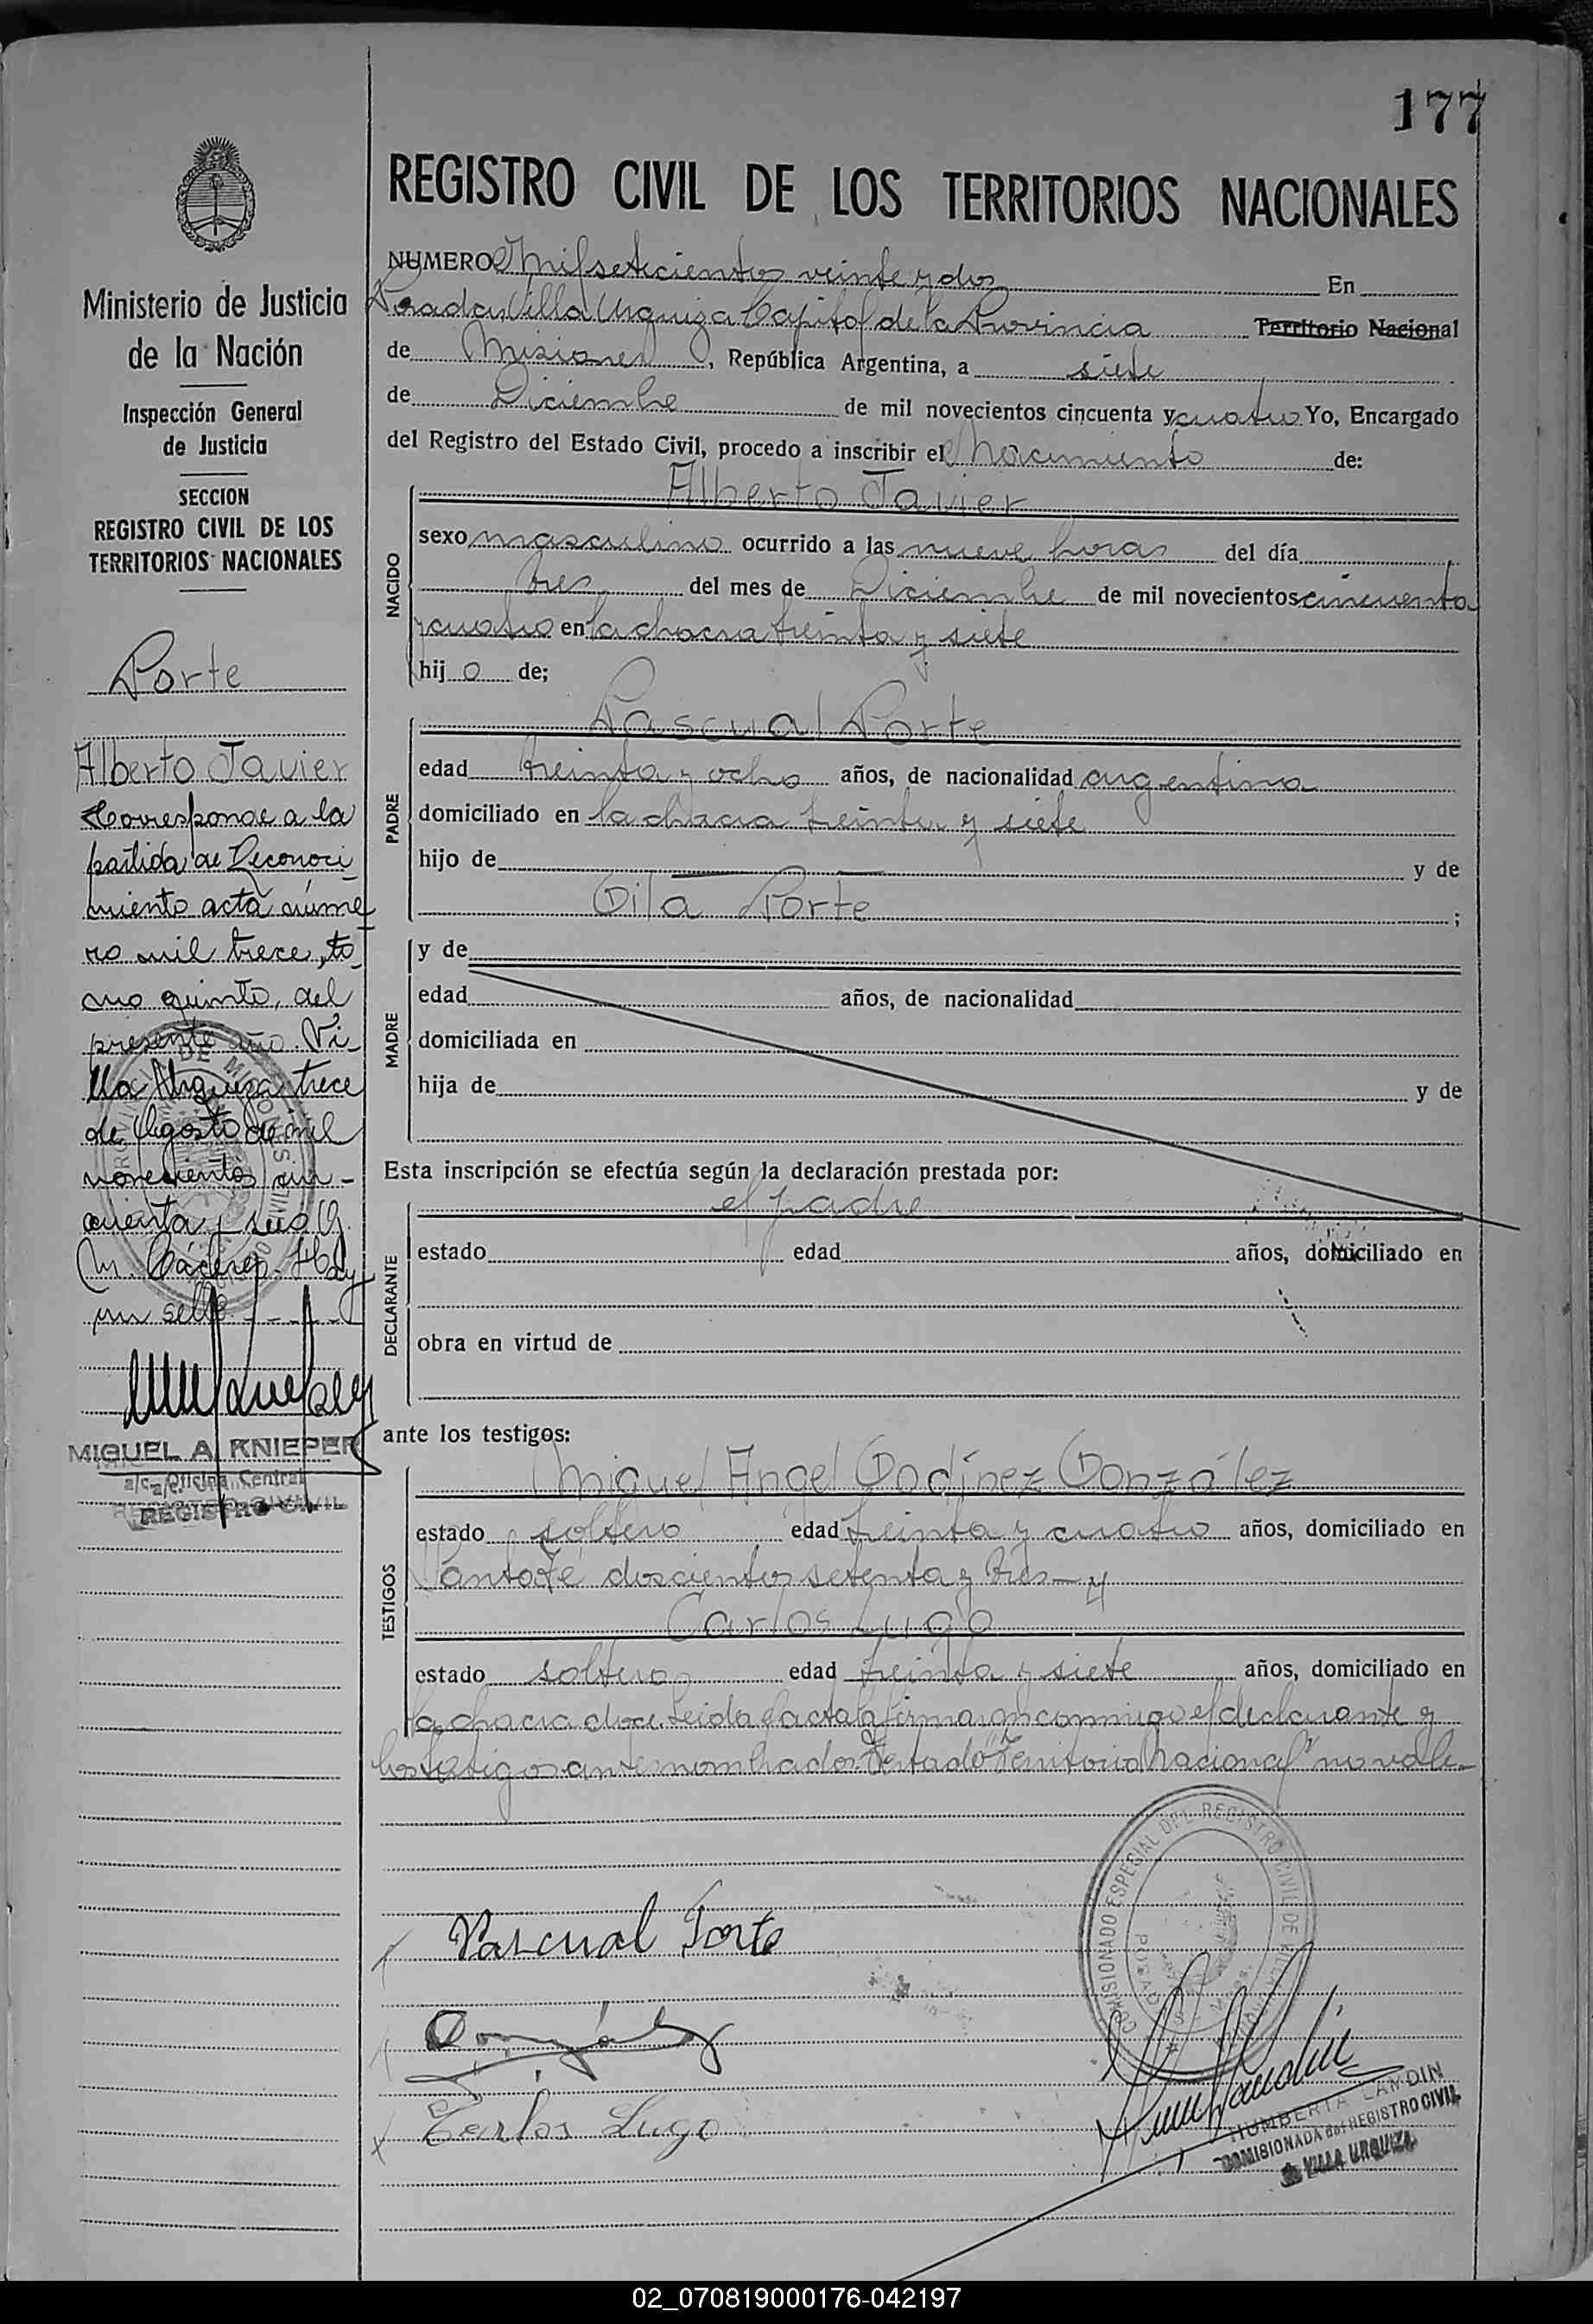 177
REGISTRO CIVIL DE LOS TERRITORIOS NACIONALES
NUMERO Mil setecientos veinte y dos En
Posadas, Villa Urquiza Capital de la Provincia Territorio Nacional
de Misiones, República Argentina, a siete
de Diciembre de mil novecientos cincuenta y cuatro Yo, Encargado
del Registro del Estado Civil, procedo a inscribir el Nacimiento de:
NACIDO
Alberto Javier
sexo masculino ocurrido a las nueve horas del día
tres del mes de Diciembre de mil novecientos cincuenta
y cuatro en la chacra treinta y siete
hijo de;
PADRE
Pascual Porte
edad treinta y ocho años, de nacionalidad argentina
domiciliado en la chacra treinta y siete
hijo de y de
Gila Porte ;
MADRE
y de
edad años, de nacionalidad
domiciliada en
hija de y de
Esta inscripción se efectúa según la declaración prestada por:
DECLARANTE
el padre
estado edad años, domiciliado en
obra en virtud de
ante los testigos:
TESTIGOS
Miguel Angel Godínez González
estado soltero edad treinta y cuatro años, domiciliado en
Santa Fé doscientos setenta y tres - y
Carlos Lugo
estado soltero edad treinta y siete años, domiciliado en
la chacra doce. Leida el acta la firmaron conmigo el declarante y
los testigos antes nombrados. Testado "Territorio Nacional" no vale.
Pascual Porte
González
Carlos Lugo
COMISIONADO ESPECIAL DEL REGISTRO CIVIL DE VILLA
POSADAS
HUMBERTA LANDIN
COMISIONADA del REGISTRO CIVIL
de VILLA URQUIZA
Ministerio de Justicia
de la Nación
Inspección General
de Justicia
SECCION
REGISTRO CIVIL DE LOS
TERRITORIOS NACIONALES
Porte
Alberto Javier
Corresponde a la
partida de Reconoci-
miento acta núme-
ro mil trece, to-
mo quinto, del
presente año. Vi-
lla Urquiza, trece
de Agosto de mil
novecientos cin-
cuenta y
M. Cáceres. Hay
un sello.
MIGUEL A. KNIEPER
a/c Oficina Central
REGISTRO CIVIL
02_070819000176-042197